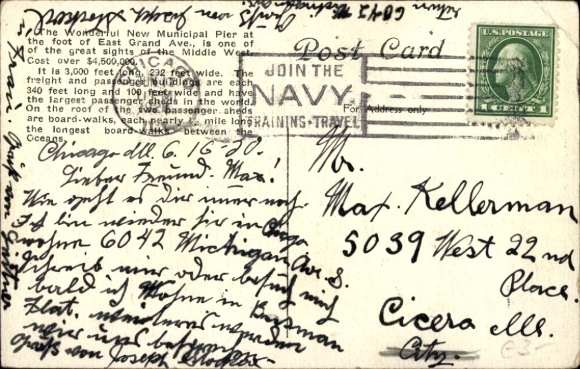 The Wonderful New Municipal Pier at
the foot of East Grand Ave., is one of
of the great sights of the Middle West.
Cost over $4,500,000.
It is 3,000 feet long, 292 feet wide. The
freight and passenger buildings are each
340 feet long and 100 feet wide and have
the largest passenger sheds in the world.
On the roof of the two passenger sheds
are board-walks, each nearly ½ mile long
the longest board-walks between the
Oceans.
Post Card
For Address only
U.S. POSTAGE
1 CENT 1
CHICAGO
JOIN THE
NAVY
TRAINING - TRAVEL
Chicago Ill 6.16.20.
Lieber Freund. Max!
Wie geht es dir immer noch
Ich bin wieder hir in Chicago
wohne 6042 Michigan Ave S.
Schreib mir oder besuch mich
bald ich Wohne in Basman
Flat. weiteres werden
wir uns besprechen
Gruss von Joseph
Mr.
Max. Kellerman
5039 West 22nd
Place.
Cicero Ills.
City.
6042
von Joseph
E3-